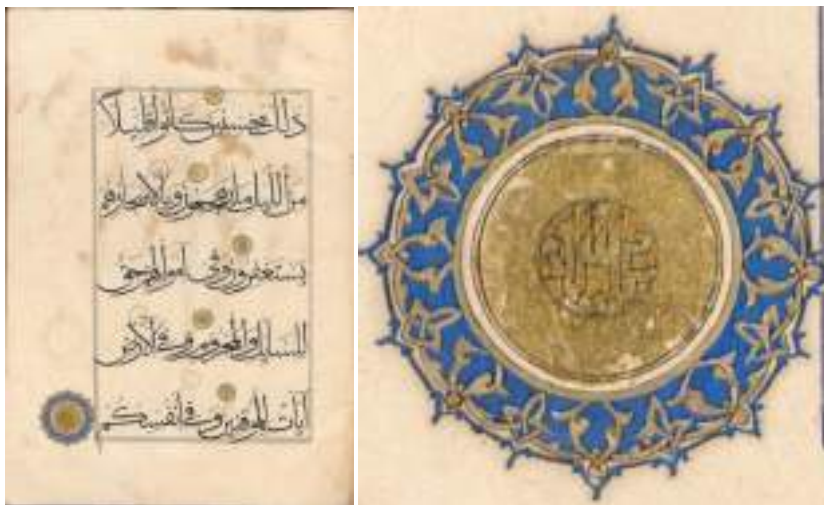 ذلك محسنين كانوا قليلا
من الليل ما يهجعون وبالاسحار هم
يستغفرون وفي أموالهم حق
للسائل والمحروم وفي الأرض
آيات للموقنين وفي أنفسكم